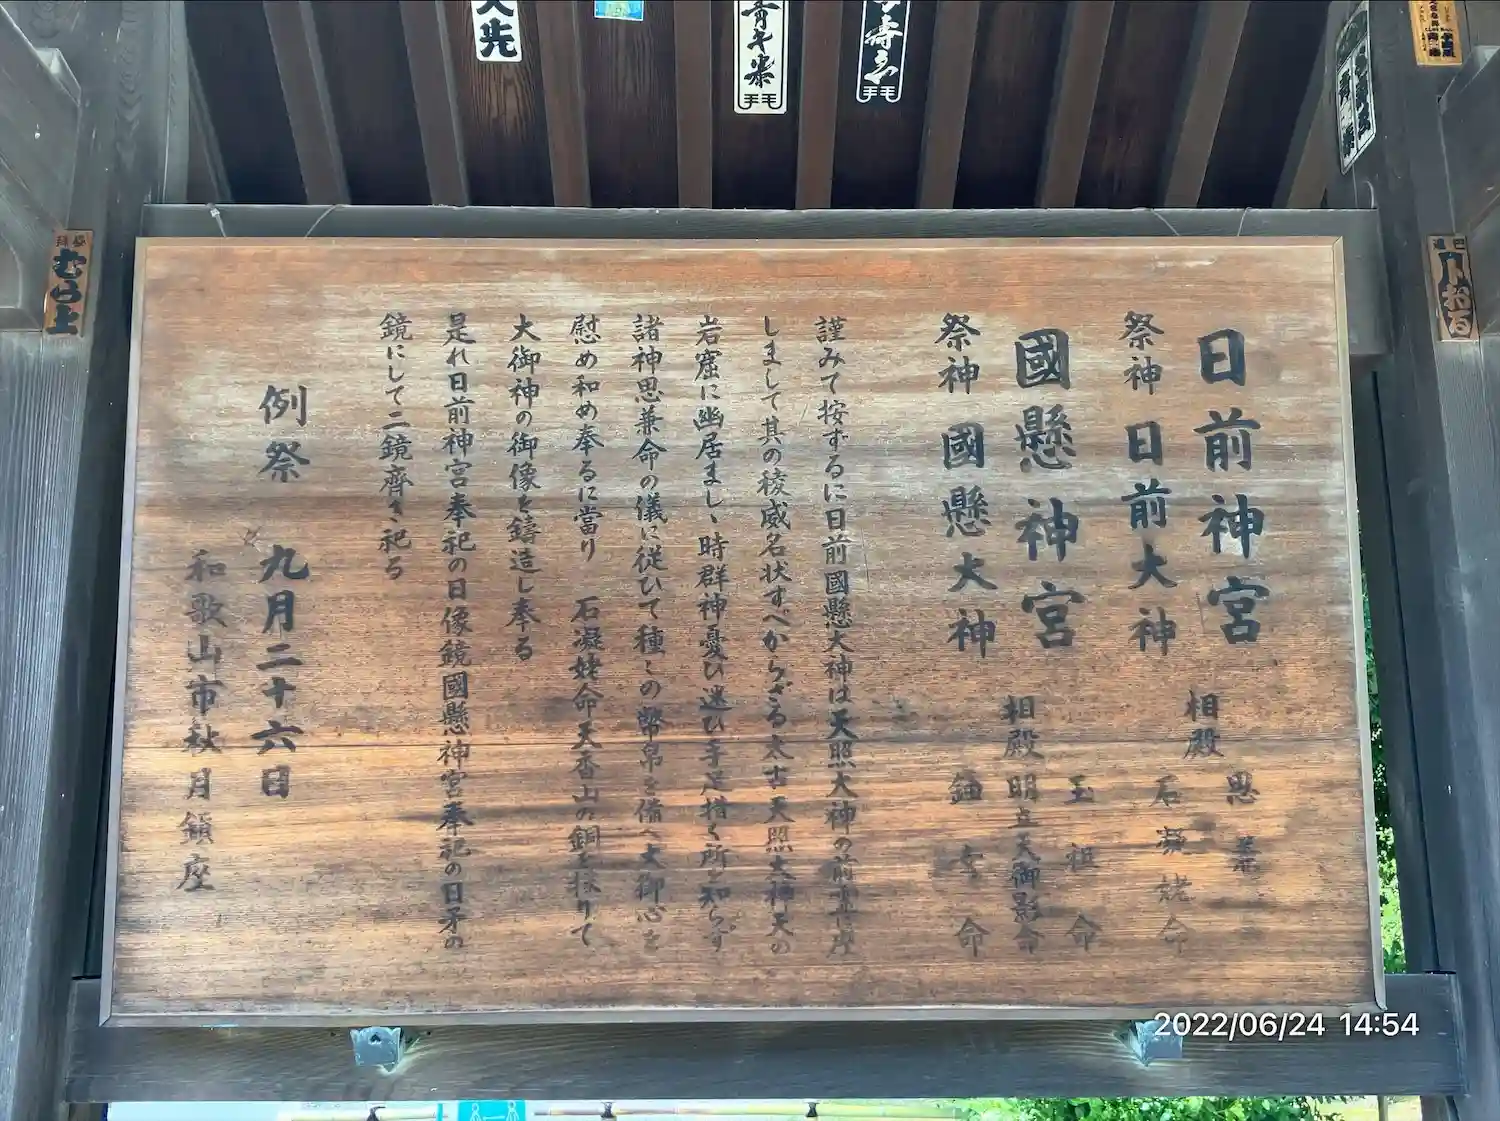 日前神宮
祭神 日前大神
相殿
思兼命
石凝姥命
國懸神宮
祭神 國懸大神
相殿
玉祖命
明立天御影命
鈿女命
謹みて按ずるに日前國懸大神は天照大神の前霊に座
しまして其の稜威名状すべからざる太古天照大神天の
岩窟に幽居ましゝ時群神憂ひ迷ひ手足措く所を知らず
諸神思兼命の儀に従ひて種々の幣帛を備へ大御心を
慰め和め奉るに當り 石凝姥命天香山の銅を採りて
大御神の御像を鋳造し奉る
是れ日前神宮奉祀の日像鏡國懸神宮奉祀の日矛の
鏡にして二鏡齊き祀る
例祭 九月二十六日
和歌山市秋月鎮座
むら上
2022/06/24 14:54